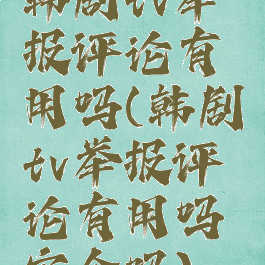 韩剧tv举
报评论有
用吗(韩剧
tv举报评
论有用吗
安全吗)